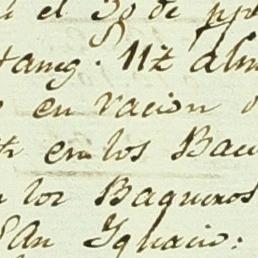 el 30 de ppe
taneg. 112 alm
en racion
en los Bau
los Baqueros
San Ygnacio: